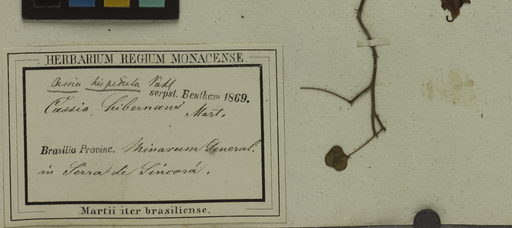 HERBARIUM REGIUM MONACENSE.
Cassia hispidula Vahl
scrpst. Bentham 1869.
Cassia hibernans Mart.
Brasilia Provinc. Minarum General.
in Serra de Sincorá.
Martii iter brasiliense.